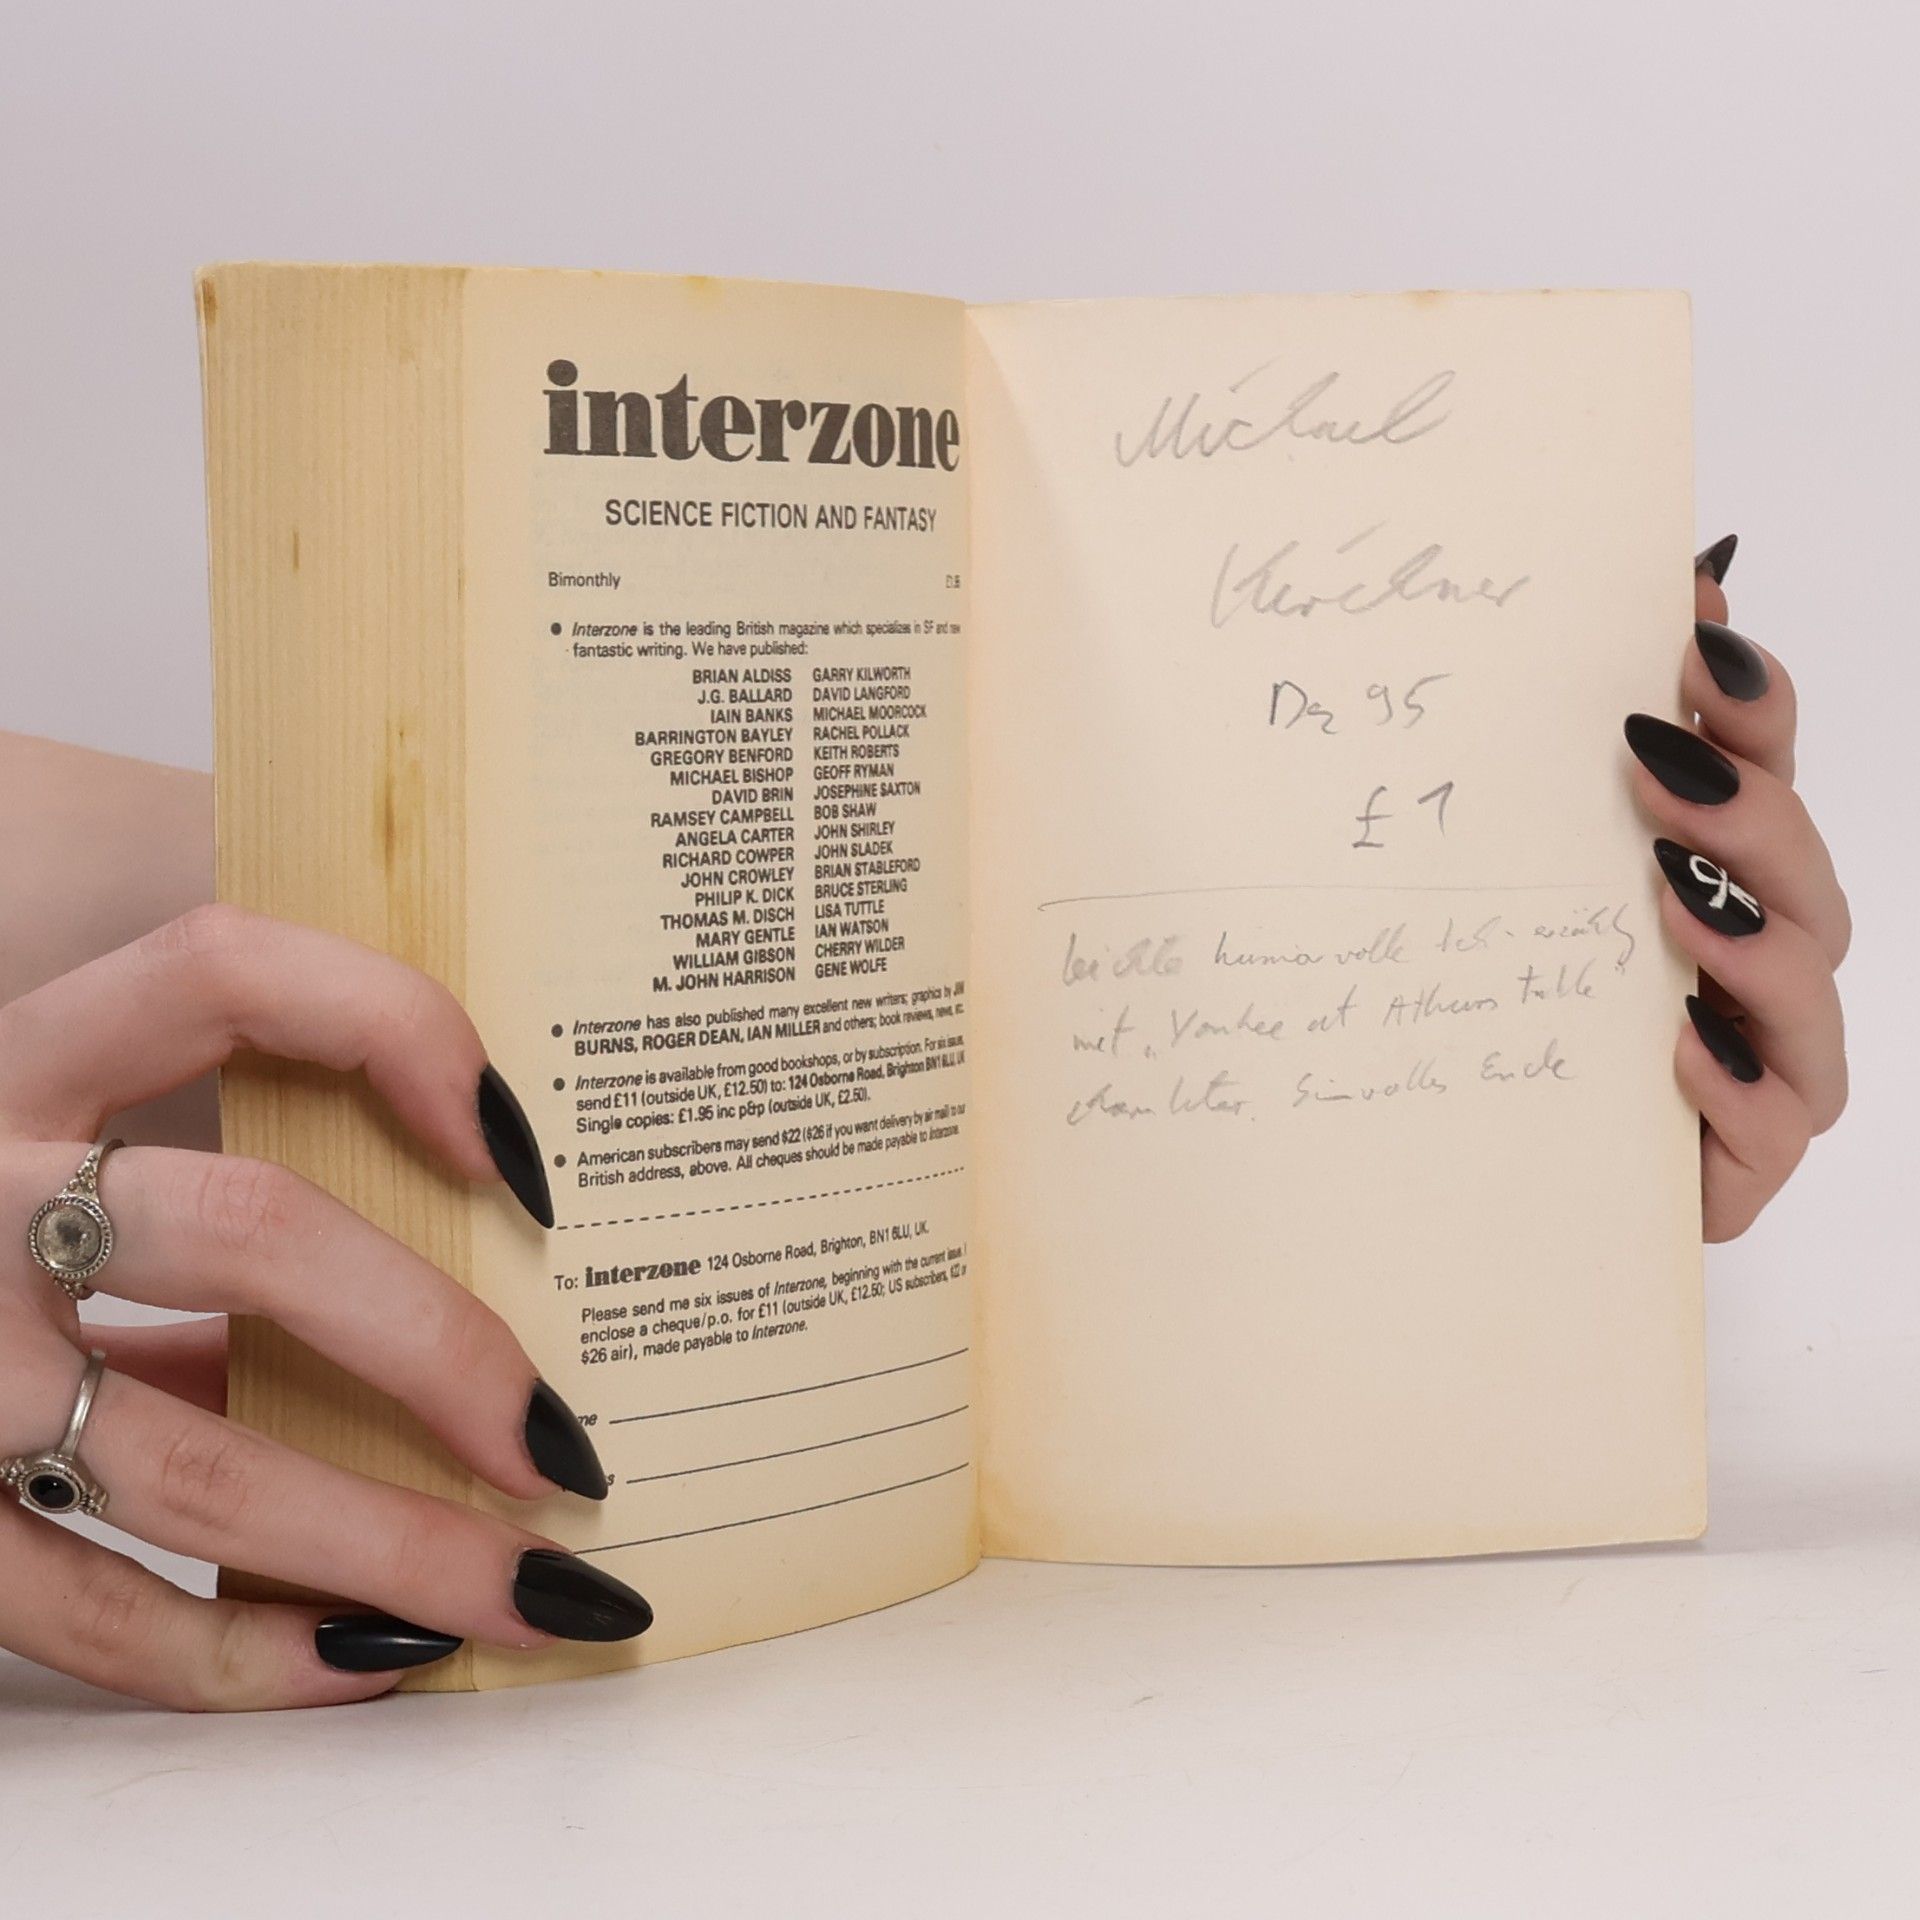 interzone
SCIENCE FICTION AND FANTASY
Bimonthly
● Interzone is the leading British magazine which specializes in SF and new
fantastic writing. We have published:
BRIAN ALDISS GARRY KILWORTH
J.G. BALLARD DAVID LANGFORD
IAIN BANKS MICHAEL MOORCOCK
BARRINGTON BAYLEY RACHEL POLLACK
GREGORY BENFORD KEITH ROBERTS
MICHAEL BISHOP GEOFF RYMAN
DAVID BRIN JOSEPHINE SAXTON
RAMSEY CAMPBELL BOB SHAW
ANGELA CARTER JOHN SHIRLEY
RICHARD COWPER JOHN SLADEK
JOHN CROWLEY BRIAN STABLEFORD
PHILIP K. DICK BRUCE STERLING
THOMAS M. DISCH LISA TUTTLE
MARY GENTLE IAN WATSON
WILLIAM GIBSON CHERRY WILDER
M. JOHN HARRISON GENE WOLFE
● Interzone has also published many excellent new writers; graphics by JIM
BURNS, ROGER DEAN, IAN MILLER and others; book reviews, news, etc.
● Interzone is available from good bookshops, or by subscription. For six issues,
send £11 (outside UK, £12.50) to: 124 Osborne Road, Brighton BN1 6LU, UK
Single copies: £1.95 inc p&p (outside UK, £2.50).
● American subscribers may send $22 ($26 if you want delivery by air mail) to our
British address, above. All cheques should be made payable to Interzone.
To: interzone 124 Osborne Road, Brighton, BN1 6LU, UK.
Please send me six issues of Interzone, beginning with the current issue. I
enclose a cheque/p.o. for £11 (outside UK, £12.50; US subscribers, $22 or
$26 air), made payable to Interzone.
Michael
Kirchner
95
£1
leichte humorvolle Ich-
mit „Yankee at Athurs
Sinnvolles Ende